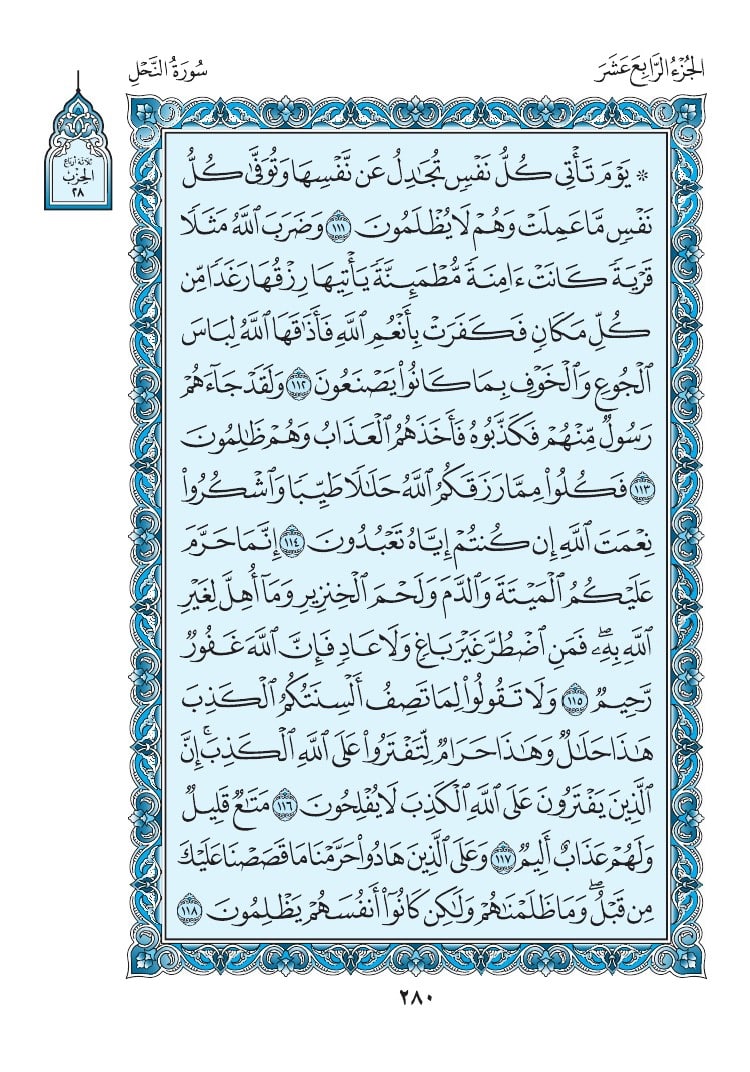 الجُزْءُ الرَّابِعَ عَشَرَ
سُورَةُ النَّحْلِ
ثلاثة أرباع
الحِزْبُ
٢٨
۞ يَوْمَ تَأۡتِي كُلُّ نَفۡسٖ تُجَٰدِلُ عَن نَّفۡسِهَا وَتُوَفَّىٰ كُلُّ
نَفۡسٖ مَّا عَمِلَتۡ وَهُمۡ لَا يُظۡلَمُونَ ١١١ وَضَرَبَ ٱللَّهُ مَثَلٗا
قَرۡيَةٗ كَانَتۡ ءَامِنَةٗ مُّطۡمَئِنَّةٗ يَأۡتِيهَا رِزۡقُهَا رَغَدٗا مِّن
كُلِّ مَكَانٖ فَكَفَرَتۡ بِأَنۡعُمِ ٱللَّهِ فَأَذَٰقَهَا ٱللَّهُ لِبَاسَ
ٱلۡجُوعِ وَٱلۡخَوۡفِ بِمَا كَانُواْ يَصۡنَعُونَ ١١٢ وَلَقَدۡ جَآءَهُمۡ
رَسُولٞ مِّنۡهُمۡ فَكَذَّبُوهُ فَأَخَذَهُمُ ٱلۡعَذَابُ وَهُمۡ ظَٰلِمُونَ
١١٣ فَكُلُواْ مِمَّا رَزَقَكُمُ ٱللَّهُ حَلَٰلٗا طَيِّبٗا وَٱشۡكُرُواْ
نِعۡمَتَ ٱللَّهِ إِن كُنتُمۡ إِيَّاهُ تَعۡبُدُونَ ١١٤ إِنَّمَا حَرَّمَ
عَلَيۡكُمُ ٱلۡمَيۡتَةَ وَٱلدَّمَ وَلَحۡمَ ٱلۡخِنزِيرِ وَمَآ أُهِلَّ لِغَيۡرِ
ٱللَّهِ بِهِۦۖ فَمَنِ ٱضۡطُرَّ غَيۡرَ بَاغٖ وَلَا عَادٖ فَإِنَّ ٱللَّهَ غَفُورٞ
رَّحِيمٞ ١١٥ وَلَا تَقُولُواْ لِمَا تَصِفُ أَلۡسِنَتُكُمُ ٱلۡكَذِبَ
هَٰذَا حَلَٰلٞ وَهَٰذَا حَرَامٞ لِّتَفۡتَرُواْ عَلَى ٱللَّهِ ٱلۡكَذِبَۚ إِنَّ
ٱلَّذِينَ يَفۡتَرُونَ عَلَى ٱللَّهِ ٱلۡكَذِبَ لَا يُفۡلِحُونَ ١١٦ مَتَٰعٞ قَلِيلٞ
وَلَهُمۡ عَذَابٌ أَلِيمٞ ١١٧ وَعَلَى ٱلَّذِينَ هَادُواْ حَرَّمۡنَا مَا قَصَصۡنَا عَلَيۡكَ
مِن قَبۡلُۖ وَمَا ظَلَمۡنَٰهُمۡ وَلَٰكِن كَانُوٓاْ أَنفُسَهُمۡ يَظۡلِمُونَ ١١٨
٢٨٠